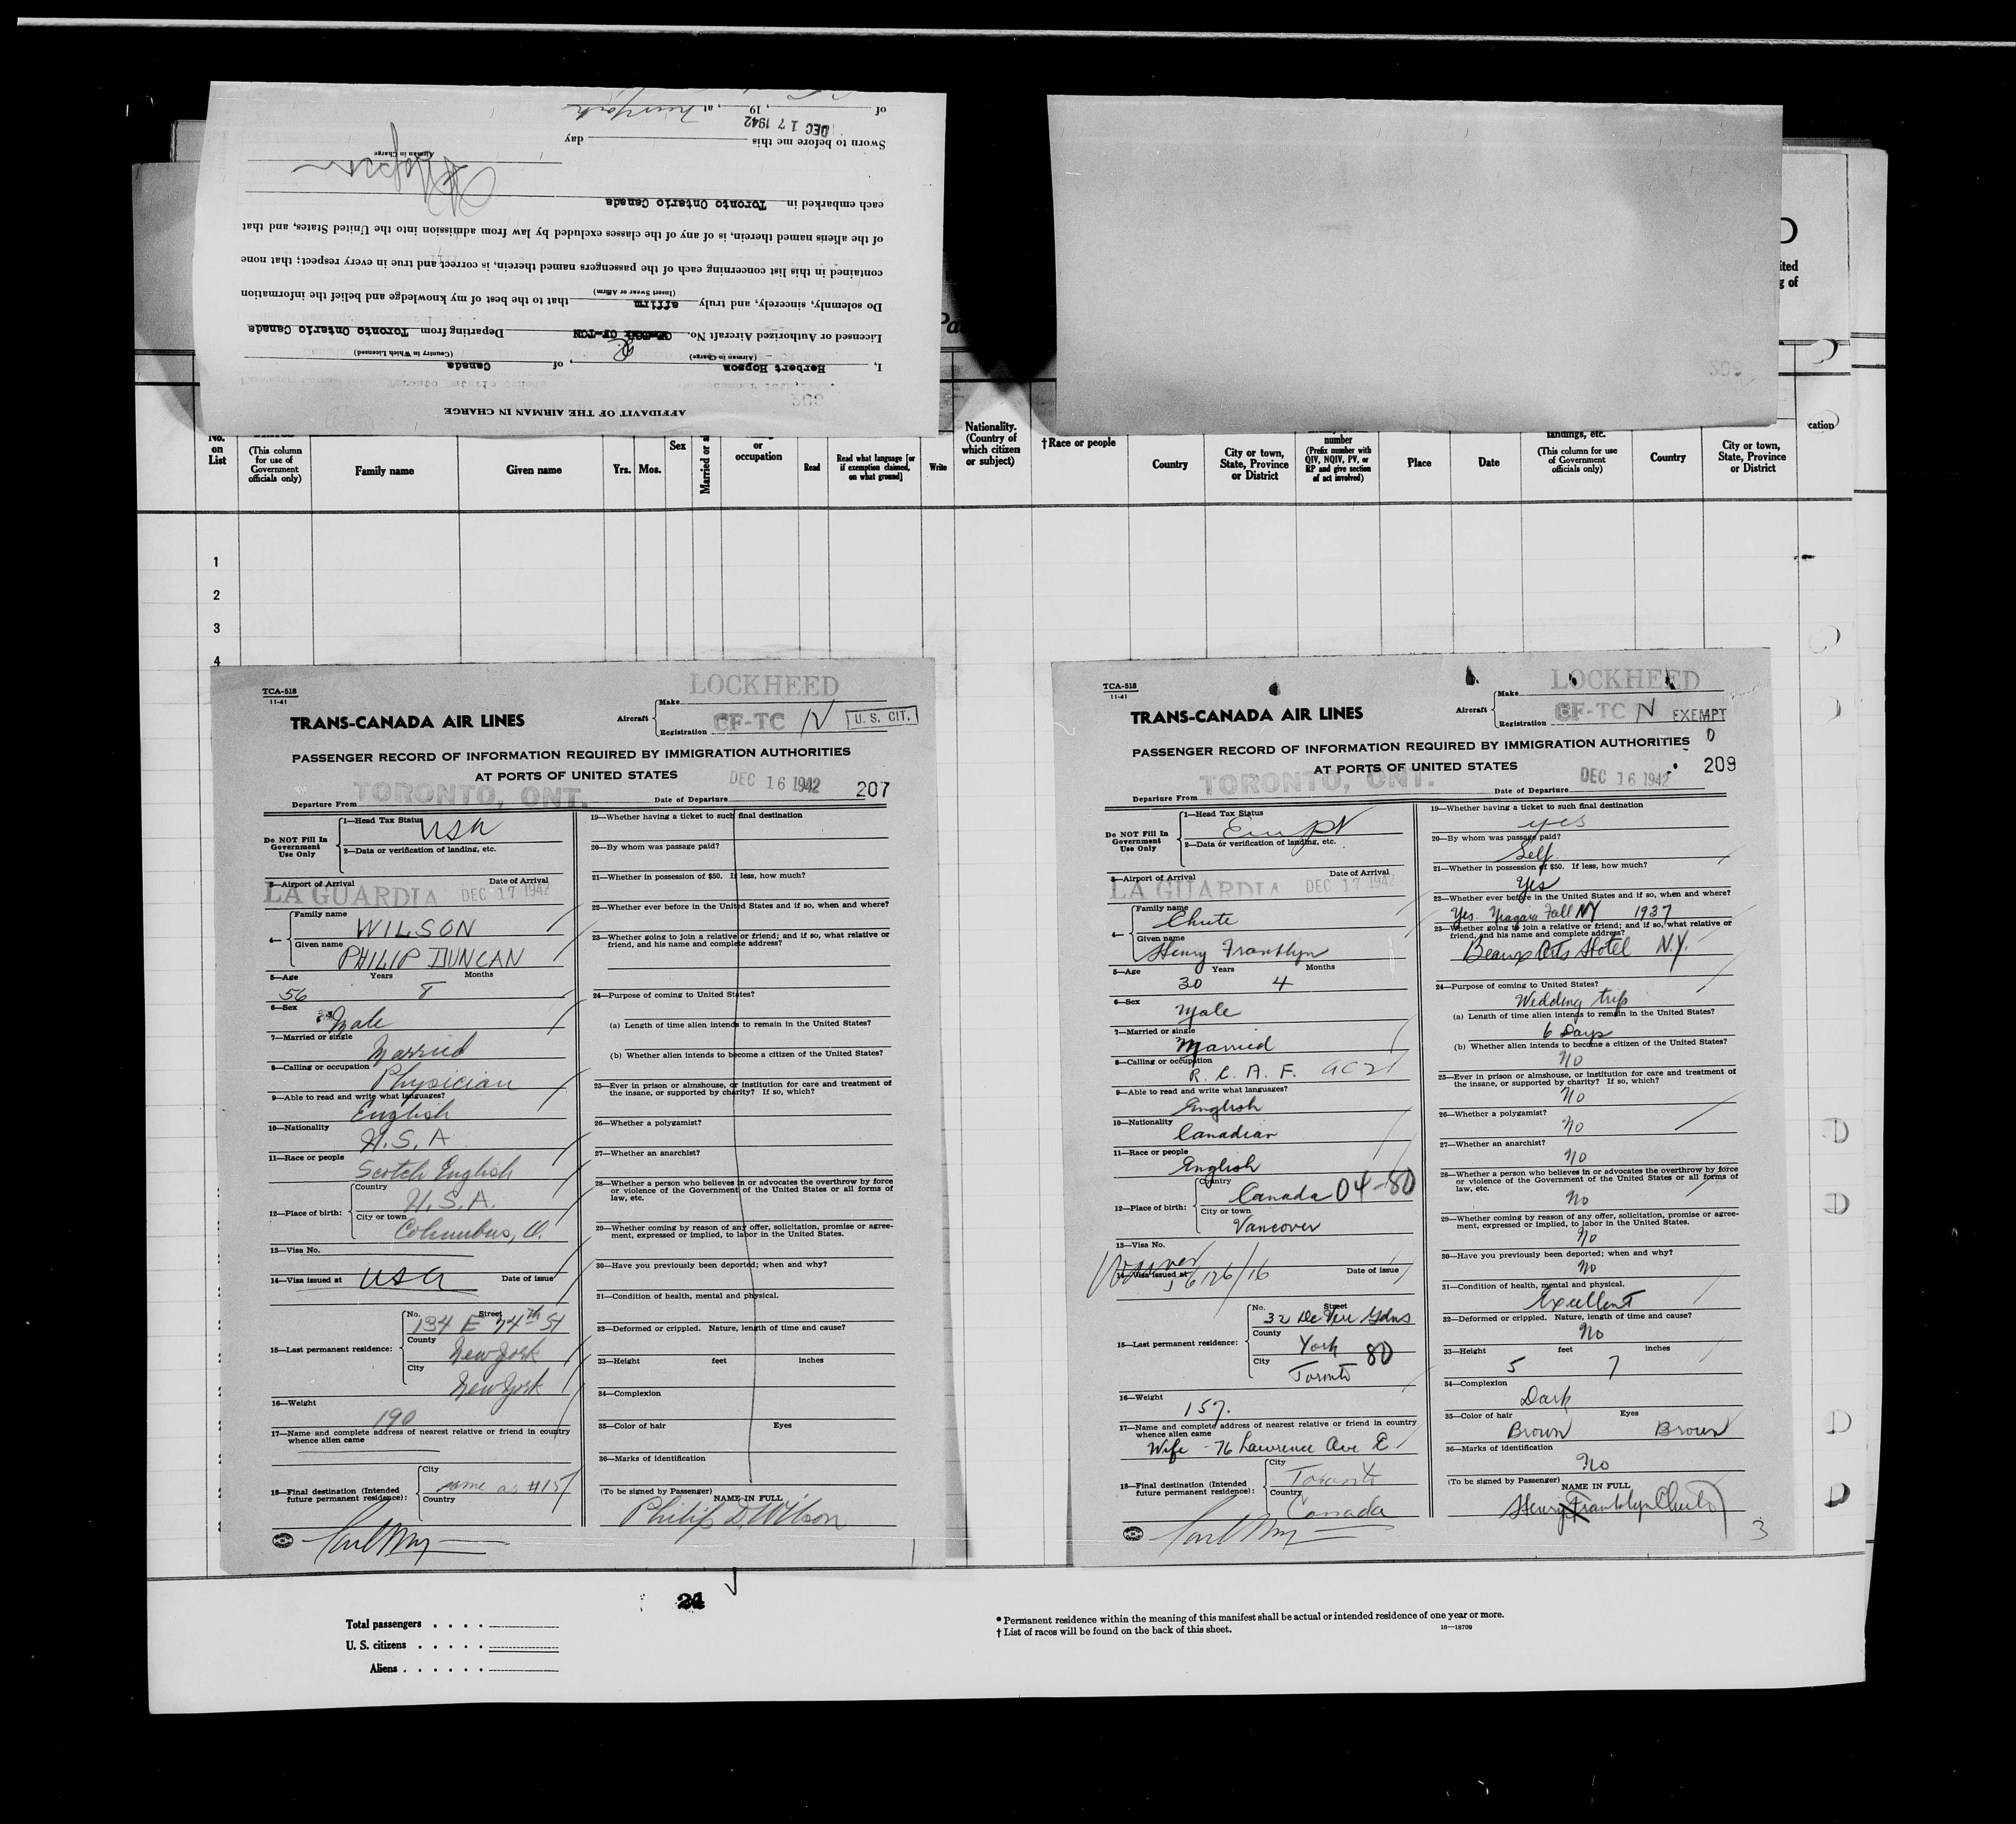 AFFIDAVIT OF THE AIRMAN IN CHARGE
I, Herbert Hopson, of Canada
(Airman in Charge) (Country in Which Licensed)
Licensed or Authorized Aircraft No. CF-TCN Departing from Toronto Ontario Canada
Do solemnly, sincerely, and truly affirm that to the best of my knowledge and belief the information
(Insert Swear or Affirm)
contained in this list concerning each of the passengers named therein, is correct and true in every respect; that none
of the aliens named therein, is of any of the classes excluded by law from admission into the United States, and that
each embarked in Toronto Ontario Canada
Airman in Charge
Sworn to before me this day
DEC 17 1942
of , 19 , at New York
No. on List
(This column for use of Government officials only)
Family name
Given name
Yrs. Mos.
Sex
or occupation
Read
Read what language [or if exemption claimed, on what ground]
Write
Nationality. (Country of which citizen or subject)
†Race or people
Country
City or town, State, Province or District
number (Prefix number with QIV, NQIV, PV, or RP and give section of act involved)
Place
Date
landings, etc. (This column for use of Government officials only)
Country
City or town, State, Province or District
1
2
3
4
TCA-518
11-41
TRANS-CANADA AIR LINES
Aircraft
Make LOCKHEED
Registration CF-TC N
U. S. CIT.
PASSENGER RECORD OF INFORMATION REQUIRED BY IMMIGRATION AUTHORITIES
AT PORTS OF UNITED STATES
Departure From TORONTO, ONT. Date of Departure DEC 16 1942 207
Do NOT Fill In Government Use Only
1—Head Tax Status USA
2—Data or verification of landing, etc.
3—Airport of Arrival Date of Arrival
LA GUARDIA DEC 17 1942
4— Family name WILSON
Given name PHILIP DUNCAN
5—Age Years Months
56 8
6—Sex Male
7—Married or single Married
8—Calling or occupation Physician
9—Able to read and write what languages? English
10—Nationality U.S.A
11—Race or people Scotch English
12—Place of birth: Country U.S.A.
City or town Columbus, O.
13—Visa No.
14—Visa issued at USA Date of issue
15—Last permanent residence: No. Street 134 E 74th St
County New York
City New York
16—Weight 190
17—Name and complete address of nearest relative or friend in country
whence alien came
18—Final destination (Intended future permanent residence): City same as #15
Country
19—Whether having a ticket to such final destination
20—By whom was passage paid?
21—Whether in possession of $50. If less, how much?
22—Whether ever before in the United States and if so, when and where?
23—Whether going to join a relative or friend; and if so, what relative or
friend, and his name and complete address?
24—Purpose of coming to United States?
(a) Length of time alien intends to remain in the United States?
(b) Whether alien intends to become a citizen of the United States?
25—Ever in prison or almshouse, or institution for care and treatment of
the insane, or supported by charity? If so, which?
26—Whether a polygamist?
27—Whether an anarchist?
28—Whether a person who believes in or advocates the overthrow by force
or violence of the Government of the United States or all forms of
law, etc.
29—Whether coming by reason of any offer, solicitation, promise or agree-
ment, expressed or implied, to labor in the United States.
30—Have you previously been deported; when and why?
31—Condition of health, mental and physical.
32—Deformed or crippled. Nature, length of time and cause?
33—Height feet inches
34—Complexion
35—Color of hair Eyes
36—Marks of identification
(To be signed by Passenger) NAME IN FULL
Philip D. Wilson
TCA-518
11-41
TRANS-CANADA AIR LINES
Aircraft
Make LOCKHEED
Registration CF-TC N EXEMPT
PASSENGER RECORD OF INFORMATION REQUIRED BY IMMIGRATION AUTHORITIES
AT PORTS OF UNITED STATES
Departure From TORONTO, ONT. Date of Departure DEC 16 1942 209
Do NOT Fill In Government Use Only
1—Head Tax Status
2—Data or verification of landing, etc.
3—Airport of Arrival Date of Arrival
LA GUARDIA DEC 17 1942
4— Family name Chute
Given name Henry Franklyn
5—Age Years Months
30 4
6—Sex Male
7—Married or single Married
8—Calling or occupation R. C. A. F. AC2
9—Able to read and write what languages? English
10—Nationality Canadian
11—Race or people English
12—Place of birth: Country Canada 04-80
City or town Vancover
13—Visa No.
14—Visa issued at Date of issue
15—Last permanent residence: No. Street 32 De Vere Gdns
County York
City Toronto 80
16—Weight 157.
17—Name and complete address of nearest relative or friend in country
whence alien came
Wife - 76 Lawrence Ave E.
18—Final destination (Intended future permanent residence): City Toronto
Country Canada
19—Whether having a ticket to such final destination
yes
20—By whom was passage paid?
Self.
21—Whether in possession of $50. If less, how much?
Yes
22—Whether ever before in the United States and if so, when and where?
Yes. Niagara Fall NY 1937
23—Whether going to join a relative or friend; and if so, what relative or
friend, and his name and complete address?
Beaux Arts Hotel N.Y.
24—Purpose of coming to United States?
Wedding trip
(a) Length of time alien intends to remain in the United States?
6 Days
(b) Whether alien intends to become a citizen of the United States?
No
25—Ever in prison or almshouse, or institution for care and treatment of
the insane, or supported by charity? If so, which?
No
26—Whether a polygamist?
No
27—Whether an anarchist?
No
28—Whether a person who believes in or advocates the overthrow by force
or violence of the Government of the United States or all forms of
law, etc.
No
29—Whether coming by reason of any offer, solicitation, promise or agree-
ment, expressed or implied, to labor in the United States.
No
30—Have you previously been deported; when and why?
No
31—Condition of health, mental and physical.
Excellent
32—Deformed or crippled. Nature, length of time and cause?
No
33—Height feet inches
5 7
34—Complexion
Dark
35—Color of hair Eyes
Brown Brown
36—Marks of identification
No
(To be signed by Passenger) NAME IN FULL
Henry Franklyn Chute
3
24
Total passengers
U. S. citizens
Aliens
* Permanent residence within the meaning of this manifest shall be actual or intended residence of one year or more.
† List of races will be found on the back of this sheet.
16—18709